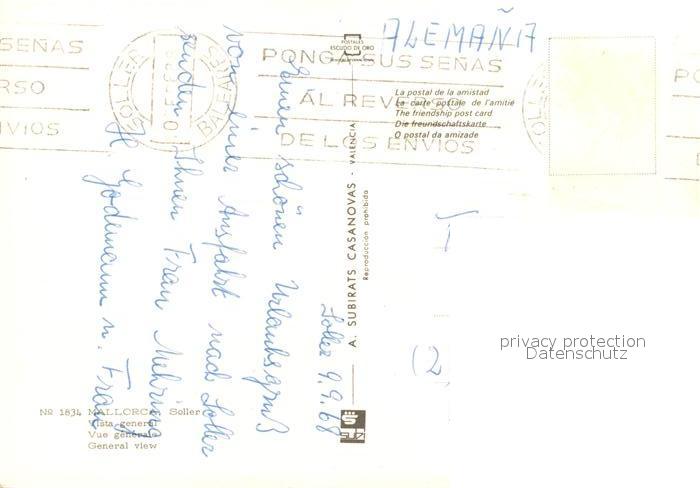 ALEMAÑIA
POSTALES
ESCUDO DE ORO
SEÑAS
RSO
VIOS
SOLLER
BALEARES
PONGA SUS SEÑAS
AL REVERSO
DE LOS ENVIOS
La postal de la amistad
La carte postale de l'amitié
The friendship post card
Die freundschaftskarte
O postal da amizade
A. SUBIRATS CASANOVAS - VALENCIA
Reproducción prohibida
Soller 9.9.68
Einen schönen Urlaubsgruß
von einer Ausfahrt nach Soller
senden Ihnen Frau Mehring
H. Godemann u. Frau
(2
privacy protection
Datenschutz
Nº 1834 MALLORCA Soller
Vista general
Vue générale
General view